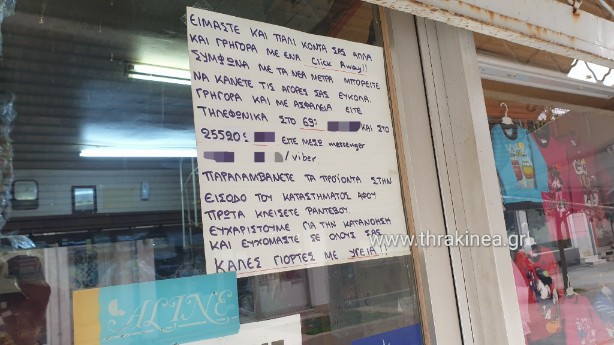 ΕΙΜΑΣΤΕ ΚΑΙ ΠΑΛΙ ΚΟΝΤΑ ΣΑΣ ΑΠΛΑ
ΚΑΙ ΓΡΗΓΟΡΑ ΜΕ ΕΝΑ Click Away!!
ΣΥΜΦΩΝΑ ΜΕ ΤΑ ΝΕΑ ΜΕΤΡΑ ΜΠΟΡΕΙΤΕ
ΝΑ ΚΑΝΕΤΕ ΤΙΣ ΑΓΟΡΕΣ ΣΑΣ ΕΥΚΟΛΑ
ΓΡΗΓΟΡΑ ΚΑΙ ΜΕ ΑΣΦΑΛΕΙΑ ΕΙΤΕ
ΤΗΛΕΦΩΝΙΚΑ ΣΤΟ 69: ΚΑΙ ΣΤΟ
25520: ΕΙΤΕ ΜΕΣΩ messenger
/viber
ΠΑΡΑΛΑΜΒΑΝΕΤΕ ΤΑ ΠΡΟΪΟΝΤΑ ΣΤΗΝ
ΕΙΣΟΔΟ ΤΟΥ ΚΑΤΑΣΤΗΜΑΤΟΣ ΑΦΟΥ
ΠΡΩΤΑ ΚΛΕΙΣΕΤΕ ΡΑΝΤΕΒΟΥ
ΕΥΧΑΡΙΣΤΟΥΜΕ ΓΙΑ ΤΗΝ ΚΑΤΑΝΟΗΣΗ
ΚΑΙ ΕΥΧΟΜΑΣΤΕ ΣΕ ΟΛΟΥΣ ΣΑΣ
ΚΑΛΕΣ ΓΙΟΡΤΕΣ ΜΕ ΥΓΕΙΑ!!
www.thrakinea.gr
ALINE